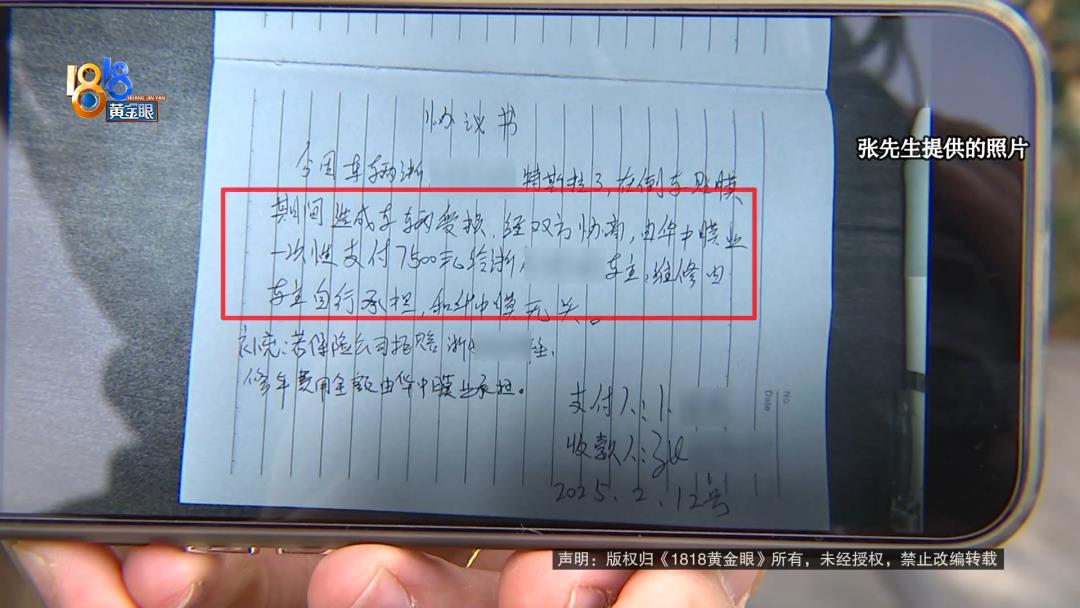 1818
HUANG JIN YAN
黄金眼
张先生提供的照片
协议书
今因车辆浙 特斯拉3，在倒车贴膜
期间造成车辆受损，经双方协商，由华中膜业
一次性支付7500元给浙 车主，维修由
车主自行承担，和华中膜无关。
补充：若保险公司拒赔浙
修车费用全额由华中膜业承担。
支付人：
收款人：张
2025.2.12号
No.
Date
声明：版权归《1818黄金眼》所有，未经授权，禁止改编转载